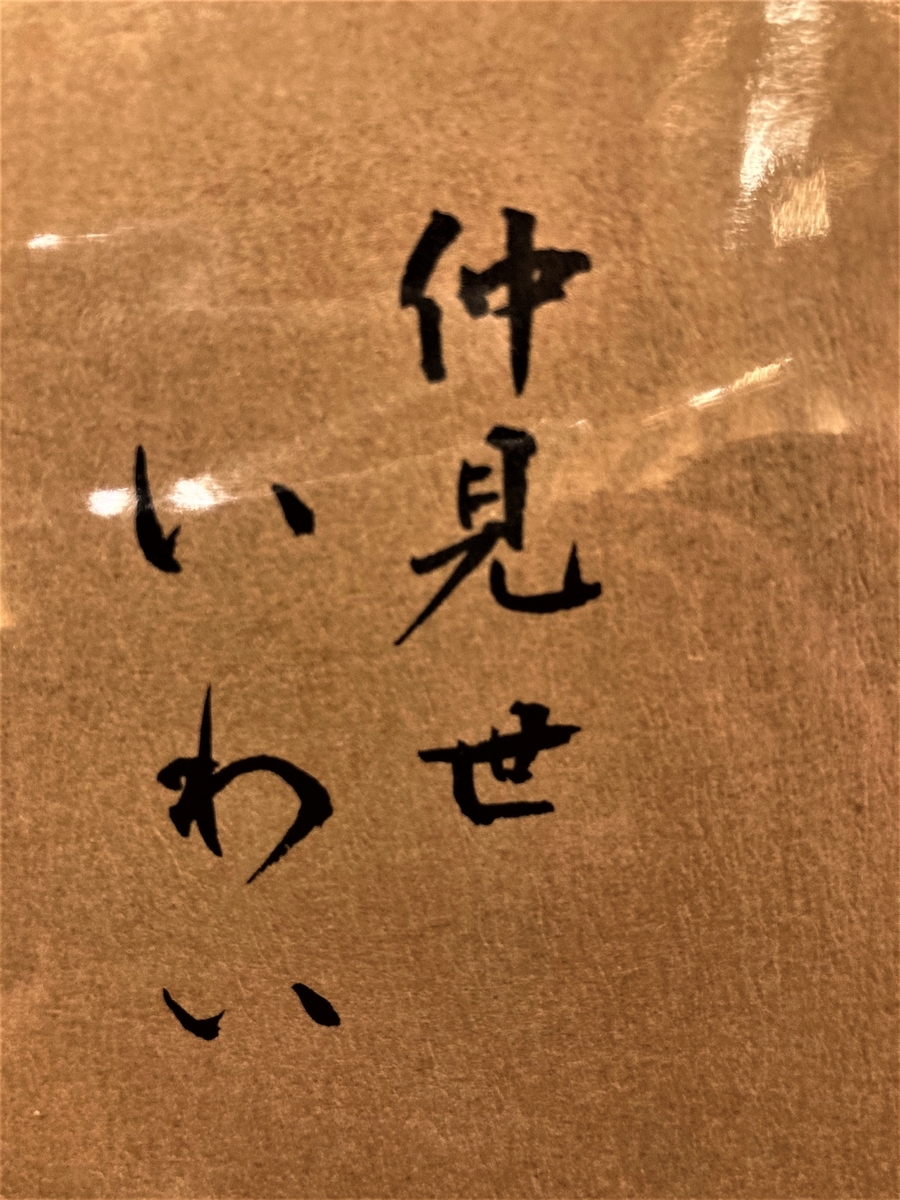 仲見世
いわい